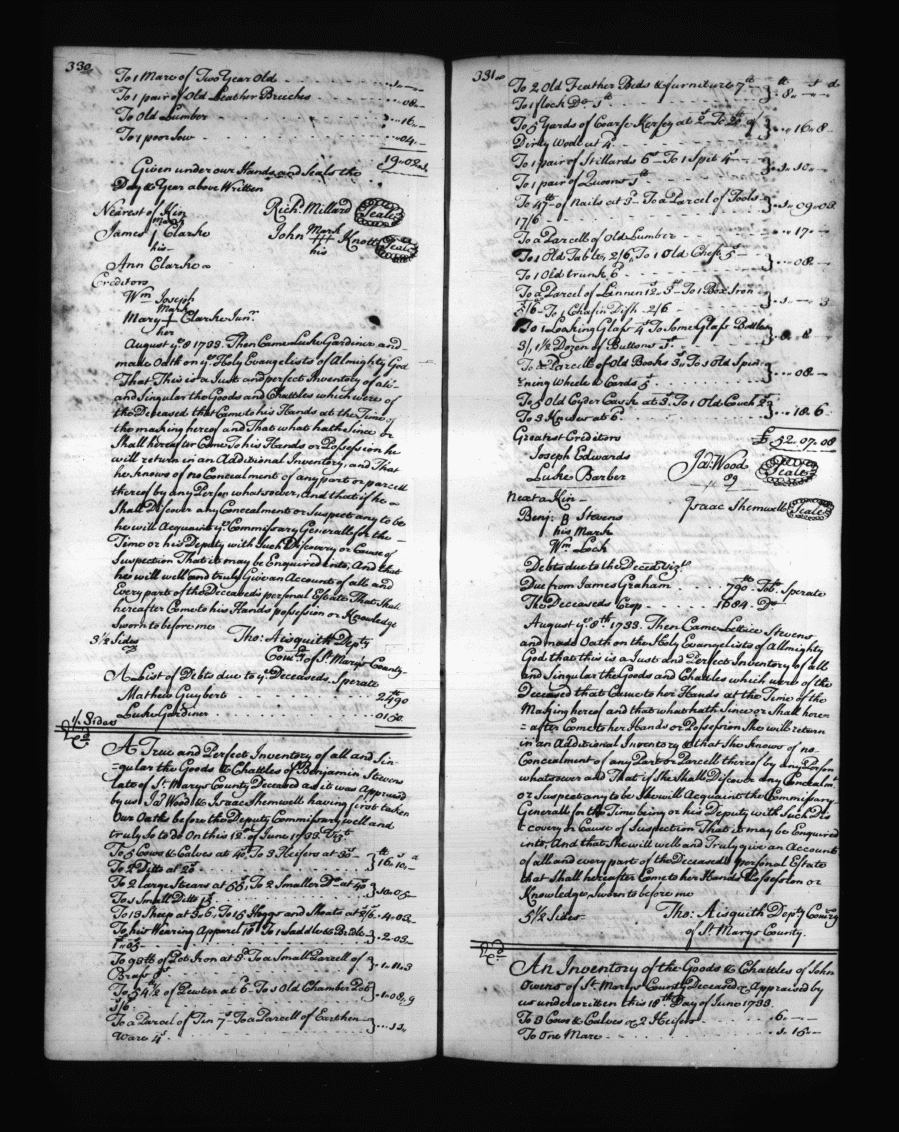 330
To 1 Mare of Two Year Old
To 1 pair of Old Leather Breeches .. 08 ..
To Old Lumber .. 16 ..
To 1 poor Sow .. 04 ..
19 .. 02
Given under our Hands and Seals the
Day & Year above Written
Nearest of Kin
Richd. Millard Seale
mark
James Clarke John Mark Knott Seale
his his
Ann Clarke
Creditors
Wm Joseph
Mark
Mary + Clarke Junr.
her
August ye. 8 1733. Then Came Luke Gardiner and
made Oath on ye. Holy Evangelists of Almighty God
That This is a Just and perfect Inventory of all
and Singular the Goods and Chattles which were of
the Deceased that Came to his Hands at the Time of
the making hereof and That what hath Since or
Shall hereafter Come To his Hands or Possession he
will return in an Additional Inventory, and That
he knows of no Concealment of any part or parcell
thereof by any Person whatsoever, and that if he
Shall Discover any Concealment or Suspect any to be
he will Acquaint ye. Commissary Generall for the
Time or his Deputy with Such Discovery or Cause of
Suspection That it may be Enquired into, And that
he will well and truly Give an Account of all and
Every part of the Deceaseds personal Estate That Shall
hereafter Come to his Hands possession or Knowledge
Sworn to before me
3½ Sides Tho: Aisquith Depty
Comry. of St. Marys County
A List of Debts due to ye. Deceaseds. Sperate
Mathew Guybert 2490
Luke Gardiner 01
1. Sides
A True and Perfect Inventory of all and Sin-
=gular the Goods & Chattles of Benjamin Stevens
late of St. Marys County Deceased as it was Appraised
by us Jas. Wood & Isaac Shemwell having first taken
Our Oaths before the Deputy Commissary well and
truly So to do On this 12th. of June 1733. Vizt
To 5 Cows & Calves at 40s. To 3 Heifers at 30s
To 2 Ditto at 20s. 16 .. 10 ..
To 2 large Stears at 55s, To 2 Smaller Do. at 40s
To 1 Small Ditto 15 10 .. 05 ..
To 13 Sheep at 5..6. To 15 Hoggs and Shoats at 2/6 .. 4 .. 03
To his Wearing Apparel To 1 Saddle & Bridle
1 .. 03 .. 2 .. 03 ..
To of Pot Iron at To a Small Parcell of
Brass 1 .. 11 .. 3
To 54½ of Pewter at To 1 Old Chamber Pot
3/6 .. 1 .. 08 .. 9
To a Parcel of Tin 7s To a Parcell of Earthen
Ware 4s. 11 ..
331
To 2 Old Feather Beds & furniture 7
To 1 flock Do 1 8 ..
To 5 Yards of Coarse Kersey at of
Dirty Wool at 4 .. 16 .. 8
To 1 pair of Stillards 6s To 1 Spit 4s
To 1 pair of 1 .. 10 ..
To 47 of Nails at To a Parcel of Tools
17/6 1 .. 09 .. 03
To a Parcell of Old Lumber .. 17 ..
To 1 Old Table, 2/6, To 1 Old Chest 5s
To 1 Old trunk 6 .. 08 ..
To a Parcel of Linnen To 1 Box Iron
3/6 To 1 Chafin Dish 2/6 1 .. .. 3
To 1 Looking Glass 4s To Some Glass Bottles
3/, 1½ Dozen of Buttons 1s. 8 .. 8
To a Parcell of Old Books 3s, To 1 Old Spin
=ning Wheele & Cards 5 .. 08 ..
To 5 Old Cyder Cask at 3s. To 1 Old Couch
To 3 Knives at 6. .. 18 .. 6
Greatest Creditors £ 52 .. 07 .. 08
Joseph Edwards
Jas. Wood Seale
Luke Barber
Next a Kin
Isaac Shemwell Seale
Benj: B Stevens
his Mark
Wm Lock
Debts due to the Deced Vizt
Due from James Graham 790 Tob. Sperate
The Deceaseds Crop 1684 Do
August ye. 8th. 1733. Then Came Lettice Stevens
and made Oath on the Holy Evangelists of Almighty
God that this is a Just and Perfect Inventory of all
and Singular the Goods and Chattles which were of the
Deceased that Came to her Hands at the Time of the
Making hereof and that what hath Since or Shall here=
=after Come to her Hands or Possession She will return
in an Additional Inventory & that She knows of no
Concealment of any Part or Parcell thereof by any Person
whatsoever and That if She Shall Discover any Concealmt
or Suspect any to be She will Acquaint the Commissary
Generall for the Time being or his Deputy with Such Dis
covery or Cause of Suspection That it may be Enquired
into, And that She will well and Truly give an Account
of all and every part of the Deceaseds personal Estate
that Shall hereafter Come to her Hands Possession or
Knowledge, Sworn to before me
5½ Sides Tho: Aisquith Depty Comry
of St. Marys County.
An Inventory of the Goods & Chattles of John
Owens of St. Marys County Deceased Appraised by
us underwritten this 18th. Day of June 1733.
To 3 Cows & Calves or 2 Heifers 6 ..
To One Mare 1 .. 15 ..